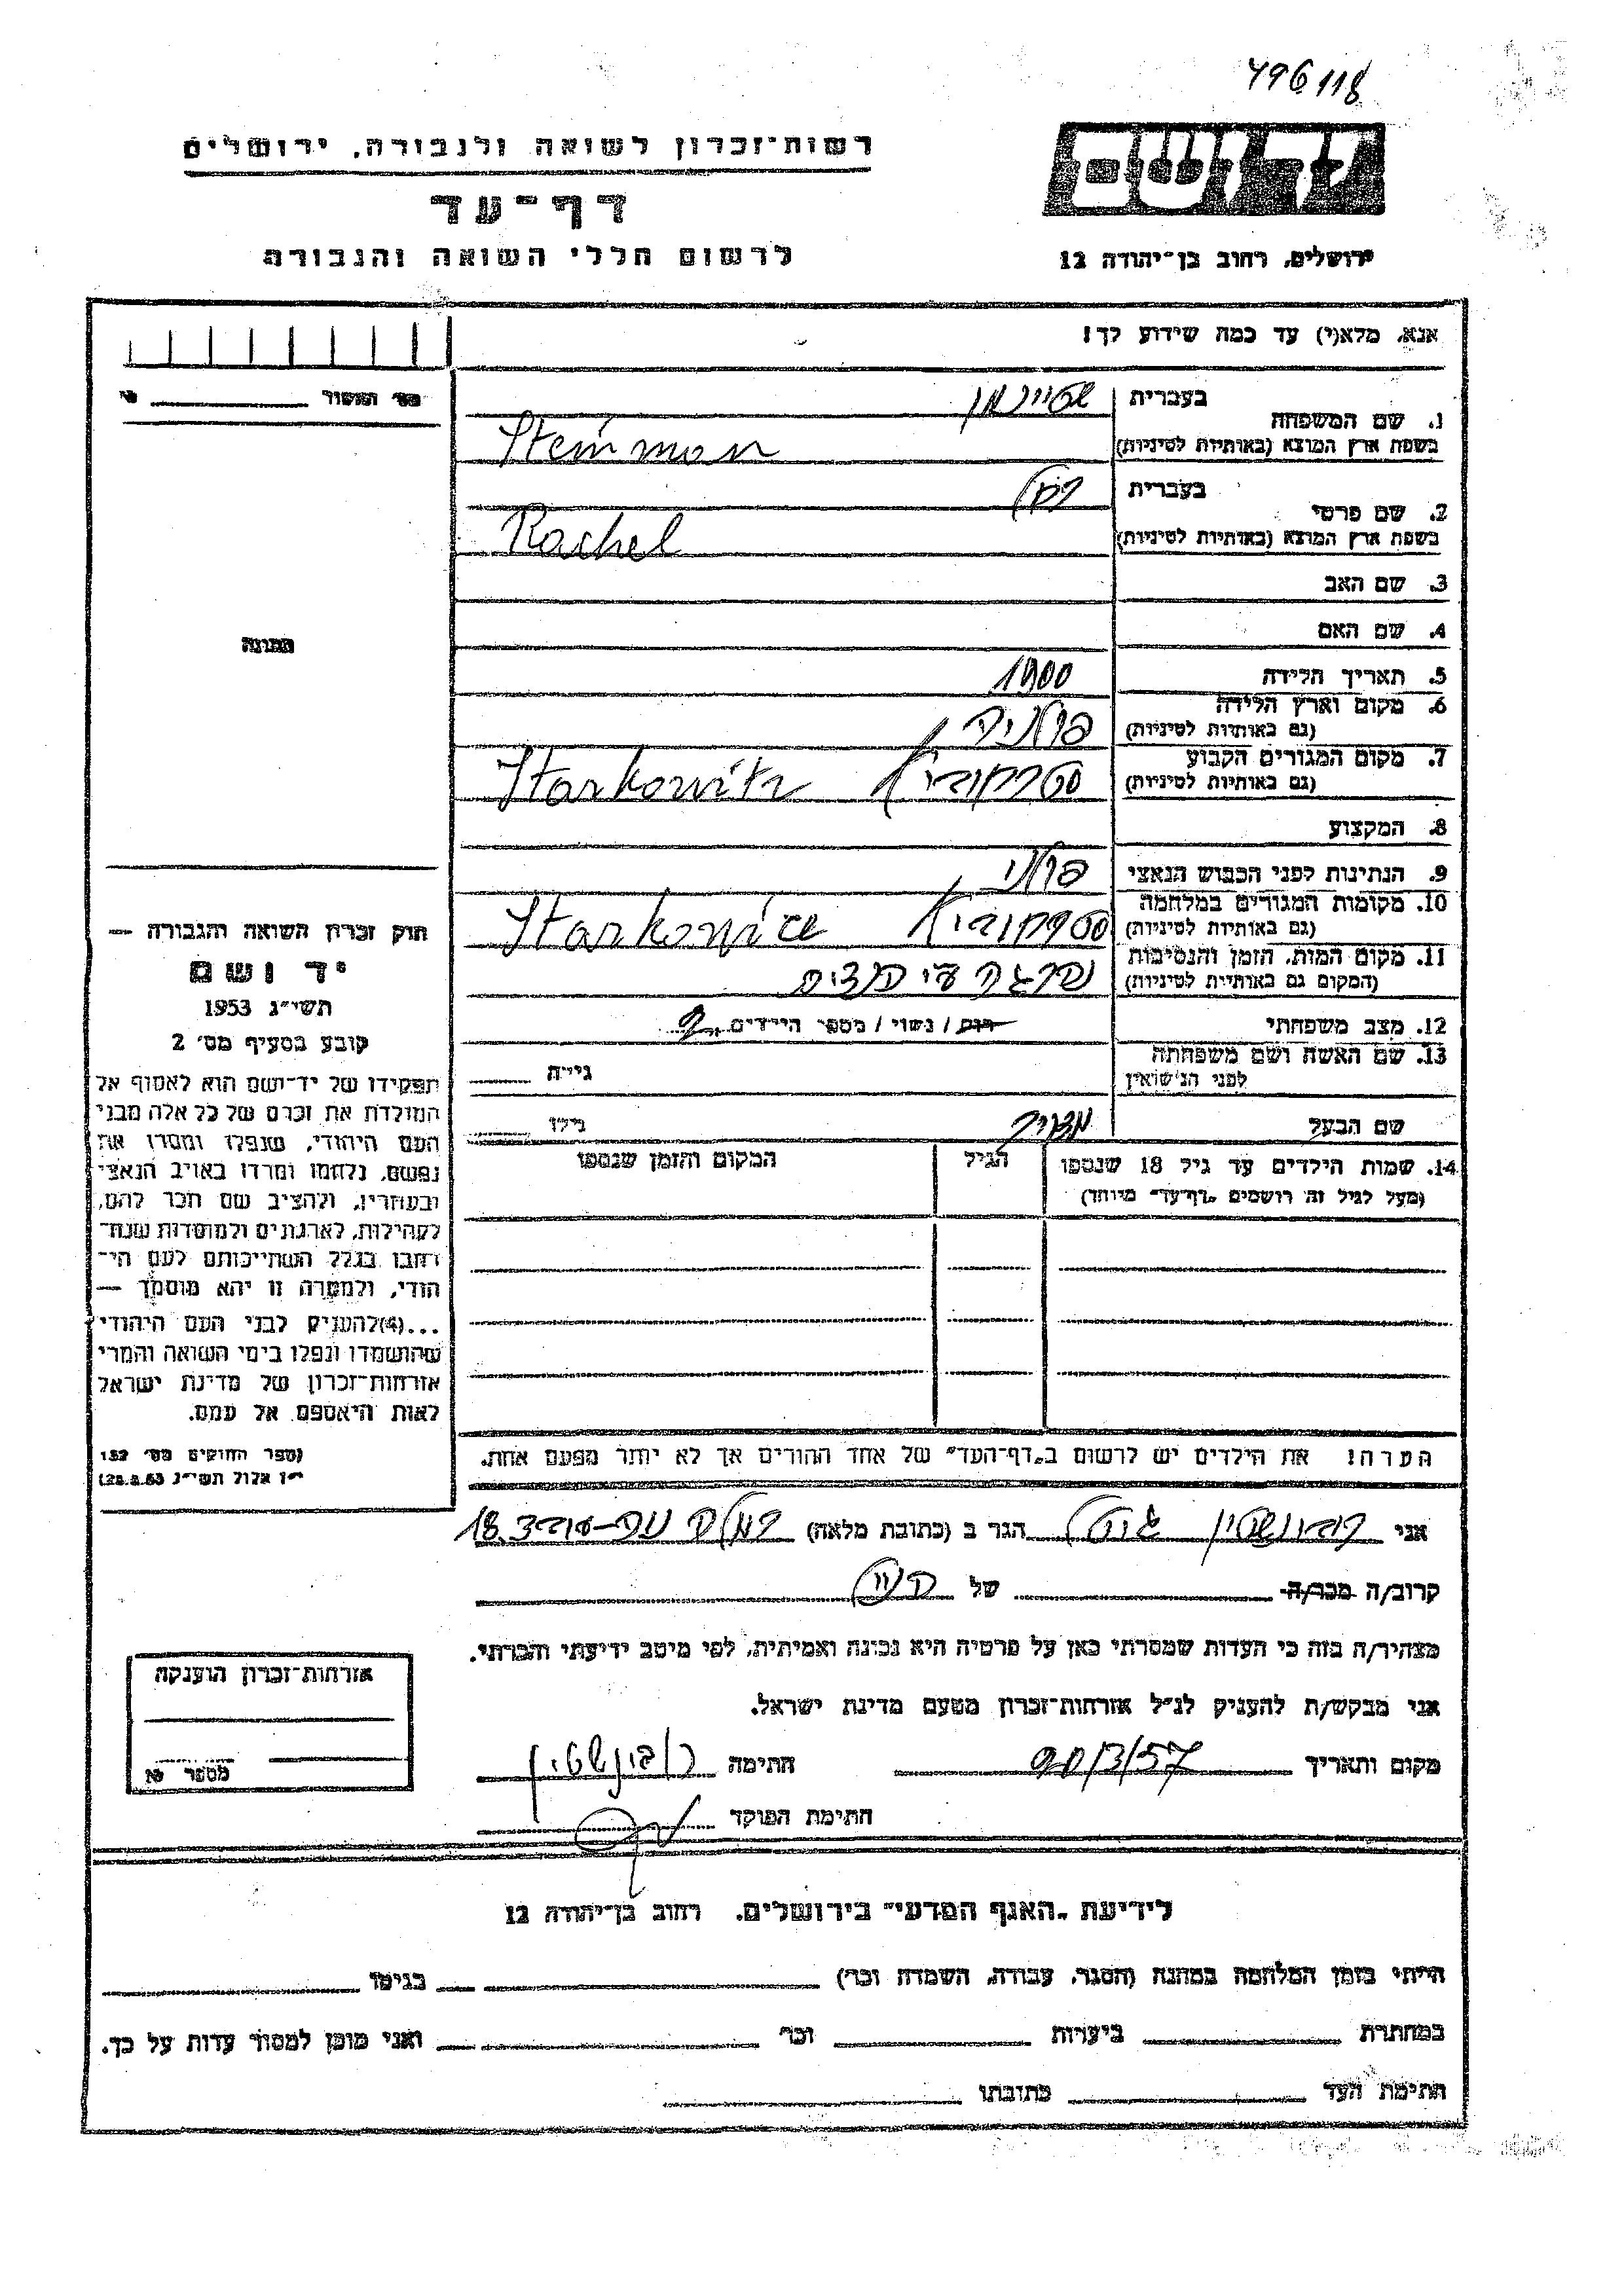 496118
רשות־זכרון לשואה ולגבורה, ירושלים
דף־עד
לרשום חללי השואה והגבורה
יד ושם
ירושלים, רחוב בן־יהודה 12
אנא, מלא(י) עד כמה שידוע לך!
מס' האשור
1. שם המשפחה
בעברית שטיינמן
בשפת ארץ המוצא (באותיות לטיניות) Steinman
2. שם פרטי
בעברית רחל
בשפת ארץ המוצא (באותיות לטיניות) Rachel
3. שם האב
4. שם האם
5. תאריך הלידה 1900
6. מקום וארץ הלידה
(גם באותיות לטיניות) פולניה
7. מקום המגורים הקבוע
(גם באותיות לטיניות) סטרקוביץ Starkowitz
8. המקצוע
9. הנתינות לפני הכבוש הנאצי פולני
10. מקומות המגורים במלחמה
(גם באותיות לטיניות) סטרקוביץ Starkowice
11. מקום המות, הזמן והנסיבות
(המקום גם באותיות לטיניות) נהרגה ע״י הנצים
12. מצב משפחתי רוק / נשוי / מספר הילדים 2
13. שם האשה ושם משפחתה
לפני הנישואין גילה
שם הבעל גילו
14. שמות הילדים עד גיל 18 שנספו
(מעל לגיל זה רושמים „דף־עד״ מיוחד)
הגיל
המקום והזמן שנספו
הערה! את הילדים יש לרשום ב„דף־העד״ של אחד ההורים אך לא יותר מפעם אחת.
תמונה
חוק זכרון השואה והגבורה —
יד ושם
תשי״ג 1953
קובע בסעיף מס' 2
תפקידו של יד־ושם הוא לאסוף אל
המולדת את זכרם של כל אלה מבני
העם היהודי, שנפלו ומסרו את
נפשם, נלחמו ומרדו באויב הנאצי
ובעוזריו, ולהציב שם וזכר להם,
לקהילות, לארגונים ולמוסדות שנח־
רבו בגלל השתייכותם לעם הי־
הודי, ולמטרה זו יהא מוסמך —
...(4)להעניק לבני העם היהודי
שהושמדו ונפלו בימי השואה והמרי
אזרחות־זכרון של מדינת ישראל
לאות היאספם אל עמם.
(ספר החוקים מס' 132
י״ז אלול תשי״ג 28.8.53)
אני רובונשטיין הגר ב (כתובת מלאה) 18.3
קרוב/ה מכר/ה של
מצהיר/ה בזה כי העדות שמסרתי כאן על פרטיה היא נכונה ואמיתית, לפי מיטב ידיעתי והכרתי.
אני מבקש/ת להעניק לנ״ל אזרחות־זכרון מטעם מדינת ישראל.
מקום ותאריך 20/3/57 חתימה רובינשטיין
חתימת הפוקד
אזרחות־זכרון הוענקה
מספר
לידיעת „האגף המדעי״ בירושלים, רחוב בן־יהודה 12
הייתי בזמן המלחמה במחנה (הסגר, עבודה, השמדה וכו') בגיטו
במחתרת ביערות וכו' ואני מוכן למסור עדות על כך.
חתימת העד כתובתו